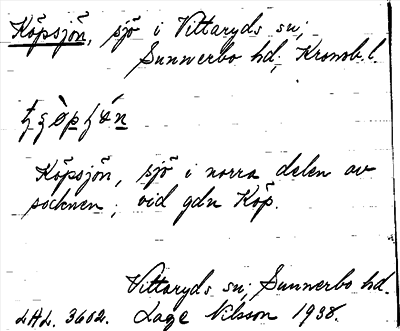 Köpsjön, sjö i Vittaryds sn;
Sunnerbo hd, Kronob. l.
Köpsjön, sjö i norra delen av
socknen, vid gdn Köp.
Vittaryds sn, Sunnerbo hd.
LAL. 3602. Lage Nilsson 1938.